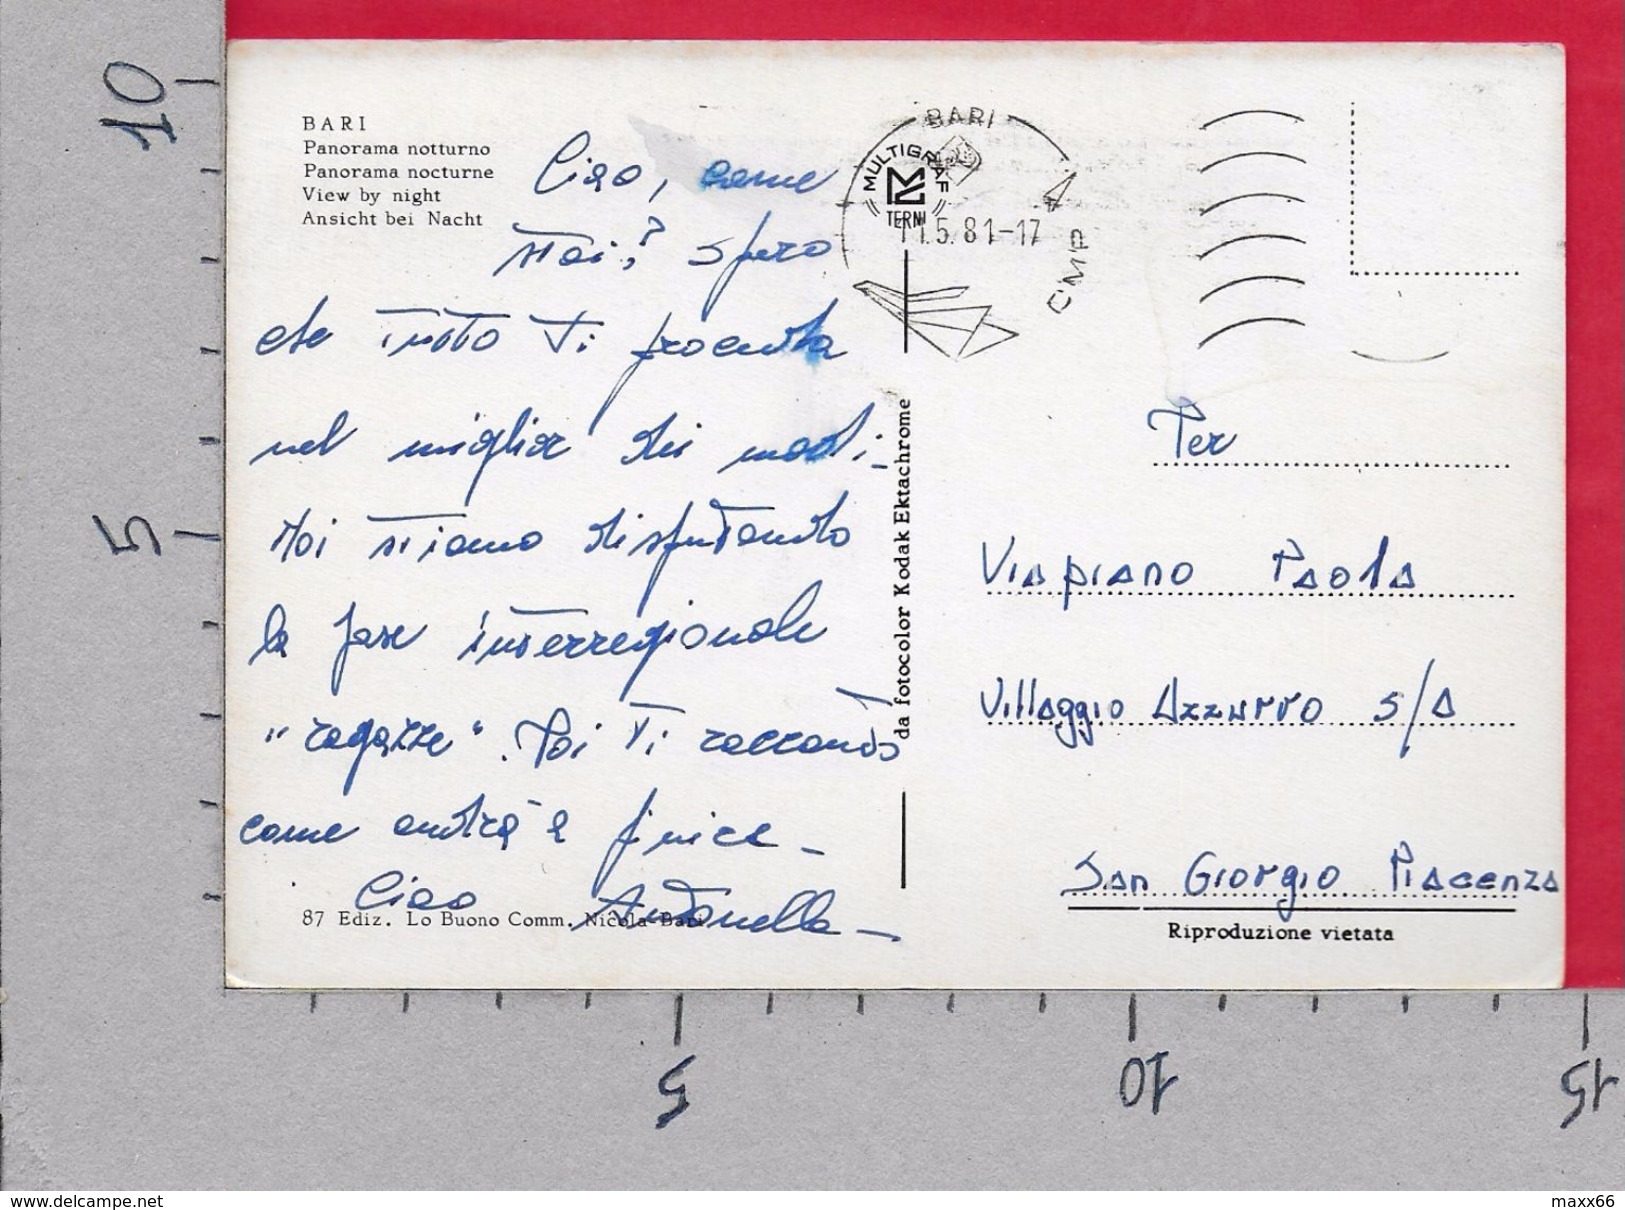 BARI
Panorama notturno
Panorama nocturne
View by night
Ansicht bei Nacht
Ciao, come
stai? Spero
che tutto ti proceda
nel miglior dei modi_
Noi stiamo disputando
la fase interregionale
"ragazze". Poi ti racconto
come andrà a finire_
Ciao Antonella_
87 Ediz. Lo Buono Comm. Nicola-Bari
da fotocolor Kodak Ektachrome
MULTIGRAF
TERNI
BARI
11.5.81-17
CMP
Per
Viapiano Paola
Villaggio Azzurro 5/A
San Giorgio Piacenza
Riproduzione vietata
10
5
5
10
15
www.delcampe.net
maxx66